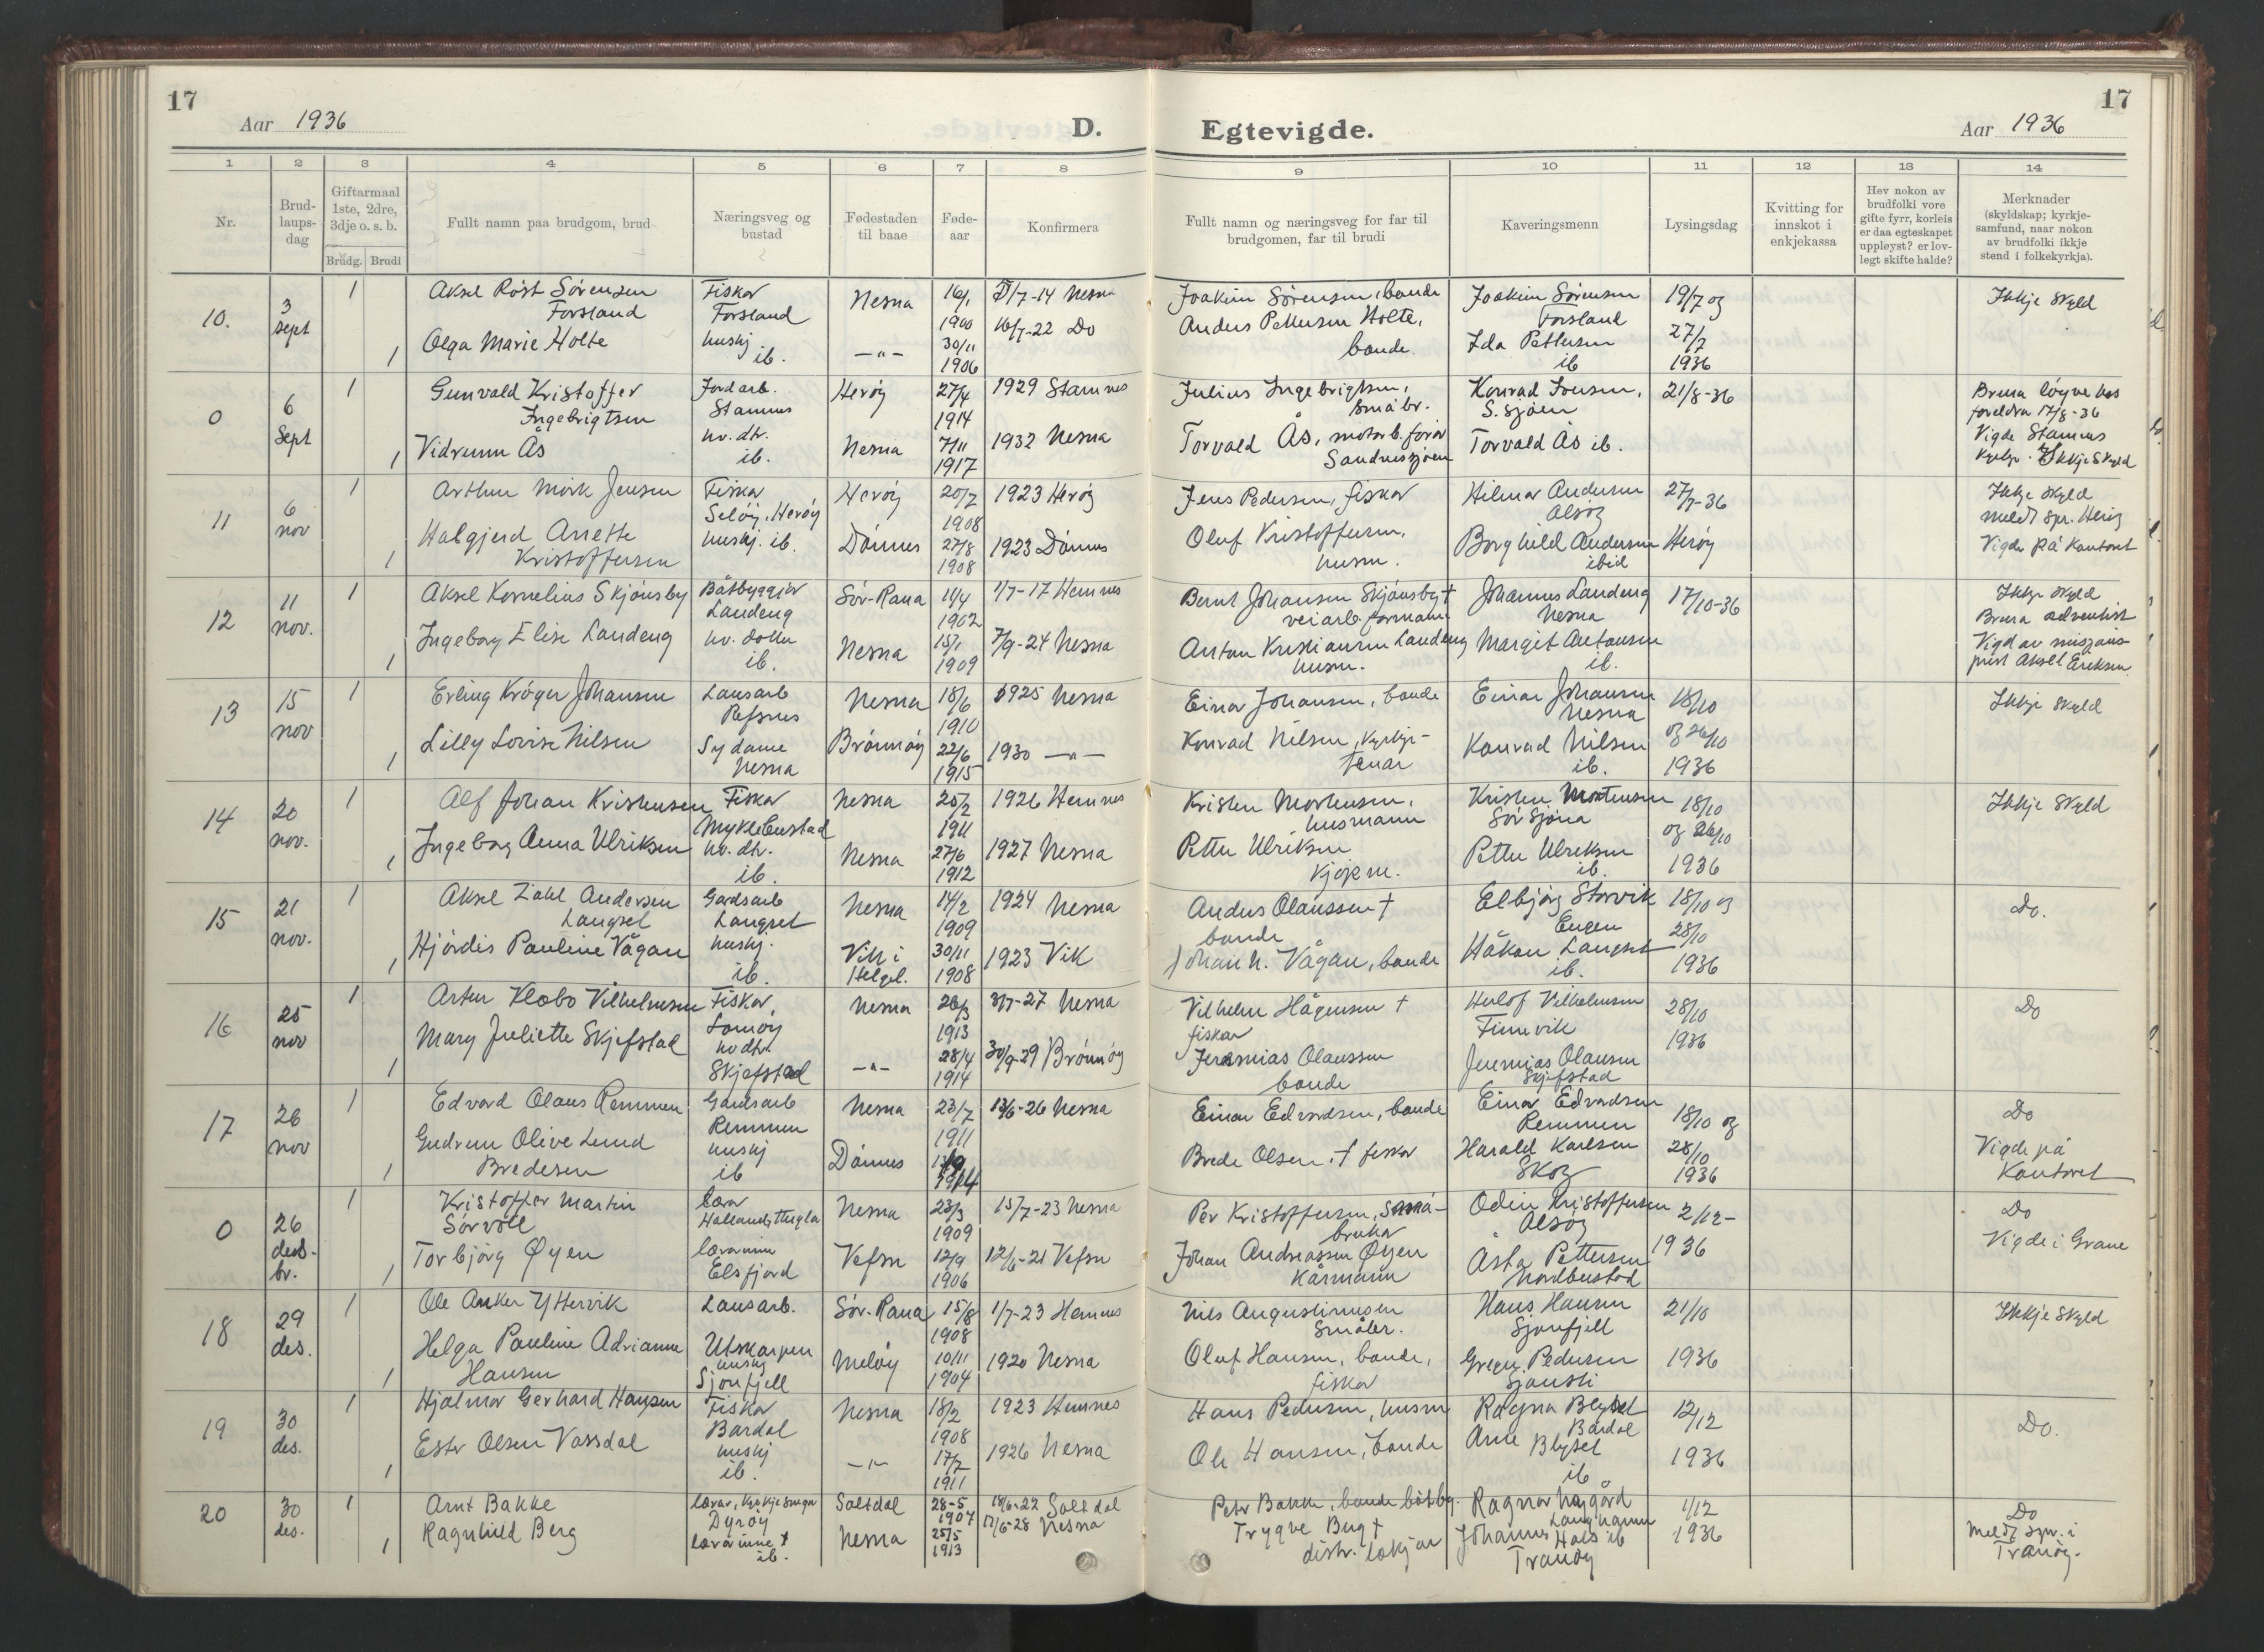 17
Aar 1936
D.
1 2 3 4 5 6 7 8
Nr.
Brud-
laups-
dag
Giftarmaal
1ste, 2dre,
3dje o. s. b.
Brudg. Brudi
Fullt namn paa brudgom, brud
Næringsveg og
bustad
Fødestaden
til baae
Føde-
aar
Konfirmera
10.
3
sept
1
Aksel Röst Sörensen
Forsland
Fiskar
Forsland
Nesna
16/1
1900
5/7-14 Nesna
1
Olga Marie Holte
hushj
ib.
-"-
30/11
1906
16/7-22 Do
0
6
Sept
1
Gunvald Kristoffer
Ingebrigtsen
Jordarb.
Stamnes
Heröy
27/4
1914
1929 Stamnes
1
Vidrunn Ås
hv. dtr.
ib.
Nesna
7/11
1917
1932 Nesna
11
6
nov
1
Arthur Mörk Jensen
Fiskar
Selöy, Heröy
Heröy
20/2
1908
1923 Heröy
1
Halgjerd Anette
Kristoffersen
hushj. ib.
Dönnes
27/8
1908
1923 Dönnes
12
11
nov.
1
Aksel Kornelius Skjönsby
Båtbyggjar
Landeng
Sör-Rana
11/4
1902
1/7-17 Hemnes
1
Ingeborg Elise Landeng
hv. dotter
ib.
Nesna
15/1
1909
7/9-24 Nesna
13
15
nov
1
Erling Kröger Johansen
Lausarb
Refsnes
Nesna
18/6
1910
1925 Nesna
1
Lilly Lovise Nilsen
Sydame
Nesna
Brönnöy
22/6
1915
1930 -"-
14
20
nov.
1
Alf Johan Kristensen
Fiskar
Myklebustad
Nesna
25/2
1911
1926 Hemnes
1
Ingeborg Anna Ulriksen
hv. dtr.
ib.
Nesna
27/6
1912
1927 Nesna
15
21
nov.
1
Aksel Zahl Andersen
Langset
Gardsarb
Langset
Nesna
14/2
1909
1924 Nesna
1
Hjördis Pauline Vågan
hushj.
ib.
Vik i
Helgel.
30/11
1908
1923 Vik
16
25
nov
1
Artur Klæbo Vilhelmsen
Fiskar,
Nesna
26/3
1913
3/7-27 Nesna
1
Mary Juliette Skjefstad
hv dtr.
Skjefstad
-"-
28/4
1914
30/9-29 Brönnöy
17
26
nov
1
Edvard Olaus Remmen
Gardsarb
Remmen
Nesna
23/7
1911
13/6-26 Nesna
1
Gudrun Olive Lund
Bredesen
hushj
ib
Dönnes
1914
0
26
desb-
br.
1
Kristoffer Martin
Sörvoll
lærar
Nesna
23/3
1909
15/7-23 Nesna
1
Torbjörg Øyen
lærarinne
Elsfjord
Vefsn
12/9
1906
12/6-21 Vefsn
18
29
des.
1
Ole Anker Yttervik
Lausarb.
Utskarpen
Sör-Rana
15/8
1908
1/7-23 Hemnes
1
Helga Pauline Adrianne
Hansen
hushj
Sjonfjell
Melöy
10/11
1904
1920 Nesna
19
30
des.
1
Hjalmar Gerhard Hansen
Fiskar
Bardal
Nesna
18/2
1908
1923 Hemnes
1
Ester Olsen Vassdal
hushj
ib.
-"-
17/7
1911
1926 Nesna
20
30
des.
1
Arnt Bakke
lærar, kyrkjesongar
Dyröy
Saltdal
28-5
1907
18/6-22 Saltdal
1
Ragnhild Berg
lærarinne
ib.
Nesna
25/5
1913
17/6-28 Nesna
17
Egtevigde.
Aar 1936
9 10 11 12 13 14
Fullt namn og næringsveg for far til
brudgomen, far til brudi
Kaveringsmenn
Lysingsdag
Kvitting for
innskot i
enkjekassa
Hev nokon av
brudfolki vore
gifte fyrr, korleis
er daa egteskapet
uppløyst? er lov-
legt skifte halde?
Merknader
(skyldskap; kyrkje-
samfund, naar nokon
av brudfolki ikkje
stend i folkekyrkja).
Joakim Sörensen, bonde
Anders Pettersen Holte,
bonde.
Joakim Sörensen
Forsland
Ida Pettersen
ib
19/7 og
27/7
1936
Ikkje Skyld
Julius Ingebrigtsen,
småbr.
Torvald Ås, motorb. förar
Sandnessjöen
Konrad Jensen,
S. sjöen
Torvald Ås ib.
21/8-36
Brura löyve hos
foreldra 17/8-36
Vigde Stamnes
Kyrkje. Ikkje Skyld
Jens Pedersen, fiskar
Oluf Kristoffersen,
husm.
Hilmar Andersen
Alsöy
Borghild Andersen
ibid
27/7-36
Heröy
Ikkje skyld
meldt spr. Heröy
Vigde på Kontoret
Bernt Johansen Skjönsby †
veiarb. formann
Anton Kristiansen Landeng
husm.
Johannes Landeng
Nesna
Margit Antonsen
ib.
17/10-36
Ikkje skyld
Brura adventist
Vigd av misjons-
prest Aksel Eriksen
Einar Johansen, bonde
Konrad Nilsen, Kyrkje-
tenar
Einar Johansen
Nesna
Konrad Nilsen
ib.
18/10
og 26/10
1936
Ikkje skyld
Kristen Mortensen,
husmann
Petter Ulriksen
Kjöpm.
Kristen Mortensen
Sör Sjona
Petter Ulriksen
ib.
18/10
og 26/10
1936
Ikkje skyld
Anders Olaussen †
bonde
Johan N. Vågan, bonde
Elbjörg Storvik
Engen
Håkon Langset
ib.
18/10 og
28/10
1936
Do.
Vilhelm Hågensen †
fiskar
Jeremias Olaussen
bonde
Herlof Vilhelmsen
Finnevik
Jeremias Olausen
Skjefstad
28/10
1936
Do
Einar Edvardsen, bonde
Brede Olsen, † fiskar
Einar Edvardsen
Remmen
Harald Karlsen
Skog
18/10 og
28/10
1936
Do
Vigde på
Kontoret
Per Kristoffersen, små-
brukar
Johan Andreassen Øyen
Kårmann
Odin Kristoffersen
Alsöy
Åsta Pettersen
Nordbustad
2/12-
1936
Do
Vigde i Grane
Nils Augustinussen
Småbr.
Oluf Hansen, bonde,
fiskar
Hans Hansen
Sjonfjell
Gregus Pedersen
Sjonsti
21/10
1936
Ikkje Skyld
Hans Pedersen, husm
Ole Hansen, bonde
Ragna Blyset
Bardal
Arne Blyset
ib.
12/12
1936
Do.
Peter Bakke, bonde båtby.
Trygve Berg †
distr. lækjar
Ragnar
Langhamn
Johannes Hals ib
Tranöy
1/12
1936
Do
Meldt spr. i
Tranöy.